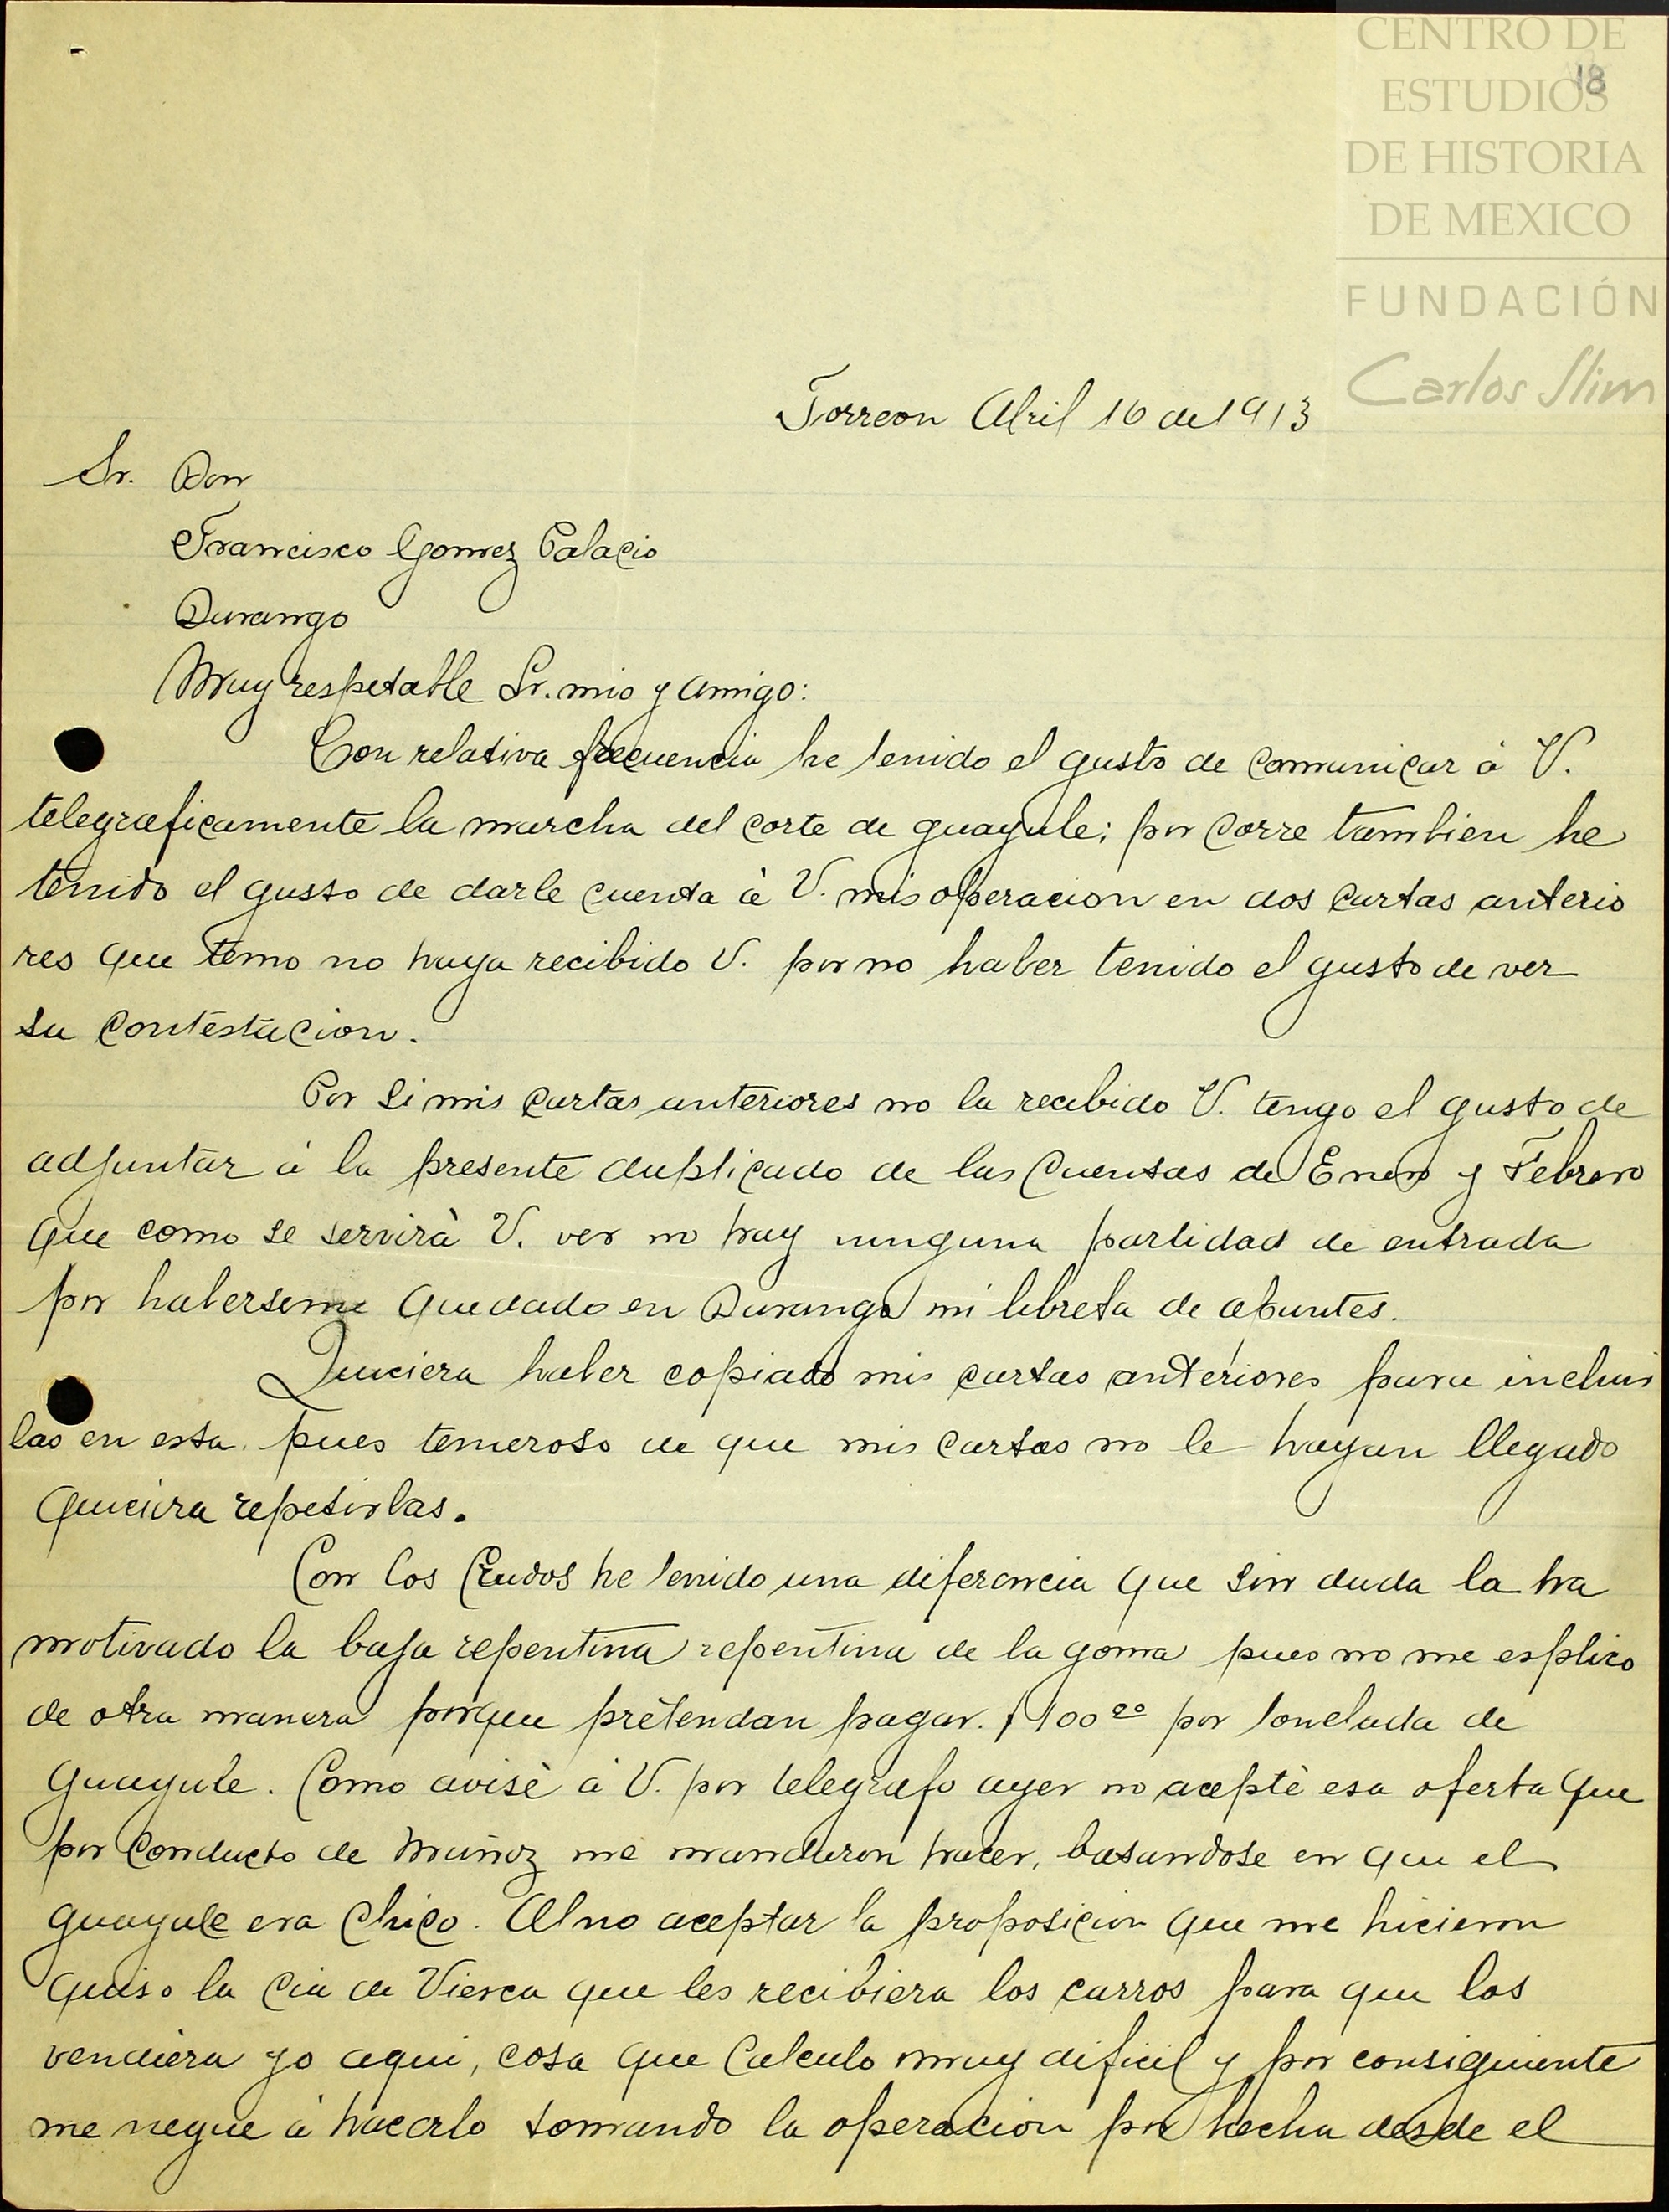 CENTRO DE
ESTUDIOS
18
DE HISTORIA
DE MEXICO
FUNDACIÓN
Carlos Slim
Torreon Abril 16 de 1913
Sr. Don
Francisco Gomez Palacio
Durango
Muy respetable Sr. mio y amigo:
Con relativa frecuencia he tenido el gusto de comunicar á V.
telegraficamente la marcha del corte de guayule; por corre tambien he
tenido el gusto de darle cuenta à V. mis operacion en dos cartas anterio
res que temo no haya recibido V. por no haber tenido el gusto de ver
su contestacion.
Por si mis cartas anteriores no la recibido V. tengo el gusto de
adjuntar á la presente duplicado de las cuentas de Enero y Febrero
que como se servirà V. ver no hay ninguna partidad de entrada
por haberseme quedado en Durango mi libreta de apuntes.
Quiciera haber copiado mis cartas anteriores para incluir
las en esta. pues temeroso de que mis cartas no le hayan llegado
quiciera repetirlas.
Con los he tenido una diferencia que sin duda la ha
motivado la baja repentina repentina de la goma pues no me esplico
de otra manera porque pretendan pagar. $100 00 por tonelada de
guayule. Como avisè á V. por telegrafo ayer no aceptè esa oferta que
por conducto de Muñoz me mandaron hacer, basandose en que el
guayule era chico. Al no aceptar la proposicion que me hicieron
quiso la Cia de Viesca que les recibiera los carros para que los
vendiera yo aqui, cosa que calculo muy dificil y por consiguiente
me negue à hacerlo tomando la operacion por hecha desde el